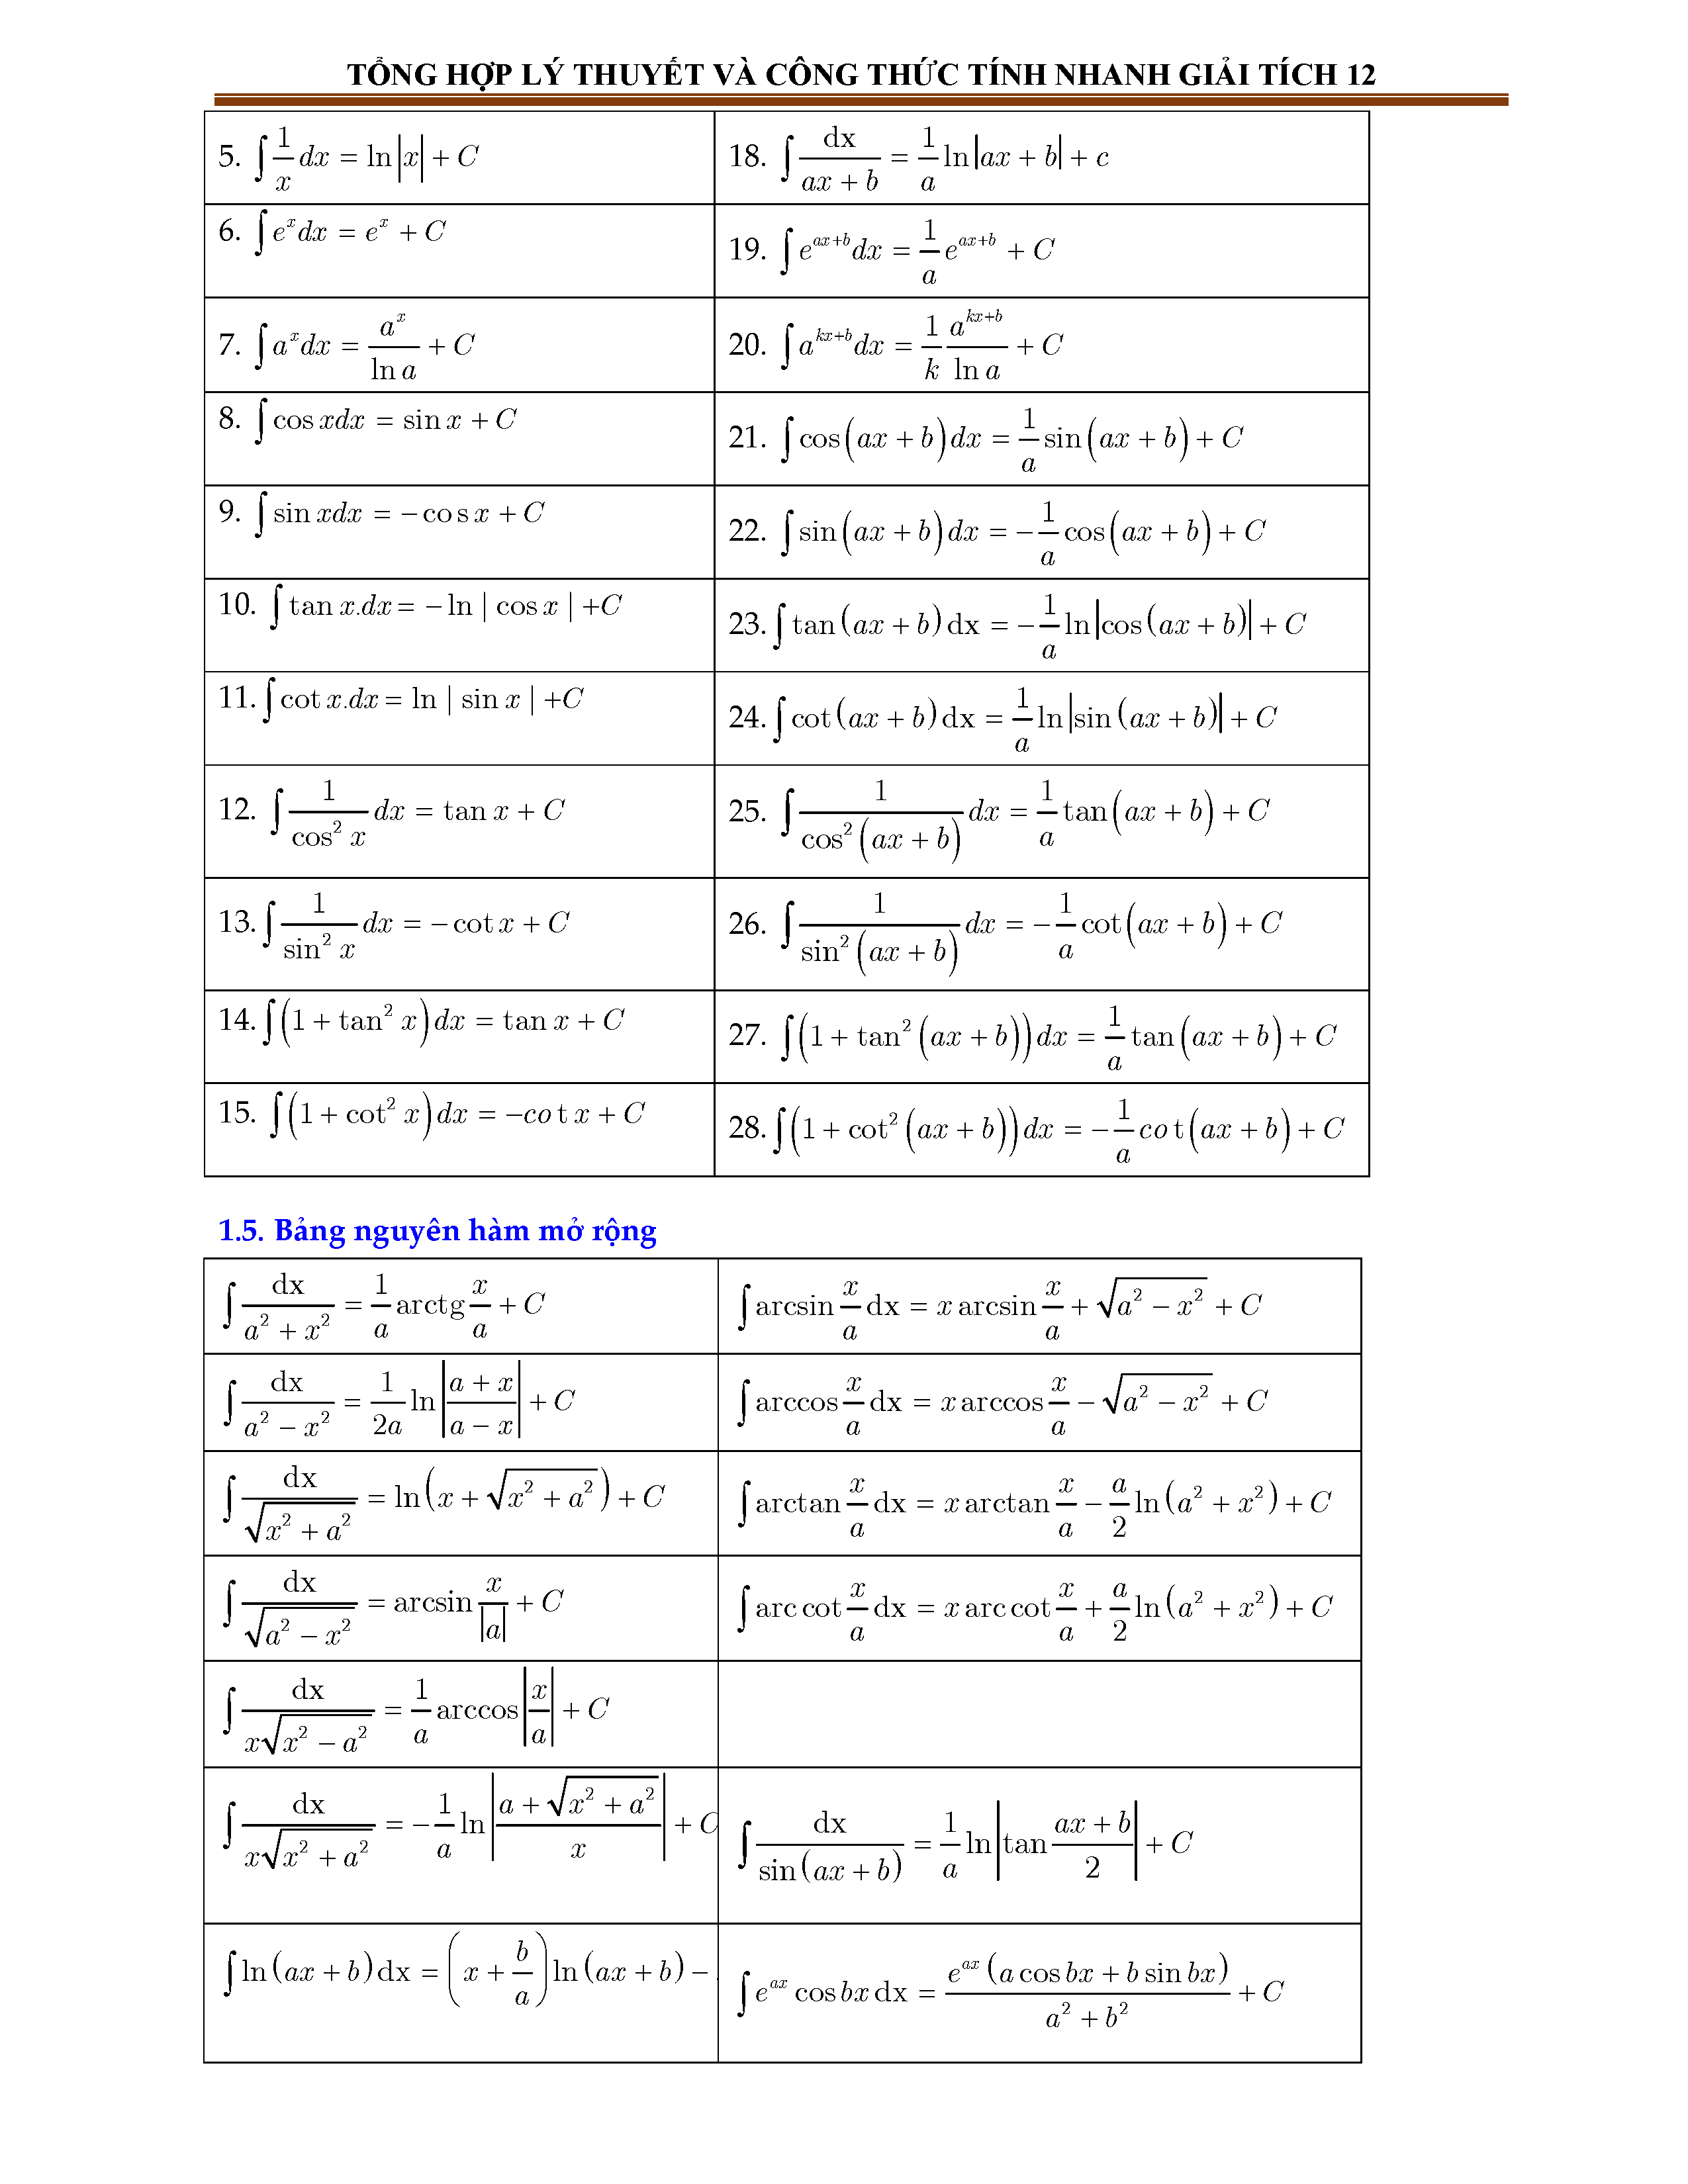 TỔNG HỢP LÝ THUYẾT VÀ CÔNG THỨC TÍNH NHANH GIẢI TÍCH 12
5. ∫ 1/x dx = ln|x| + C
18. ∫ dx/(ax + b) = 1/a ln|ax + b| + c
6. ∫ e^x dx = e^x + C
19. ∫ e^(ax+b) dx = 1/a e^(ax+b) + C
7. ∫ a^x dx = a^x/ln a + C
20. ∫ a^(kx+b) dx = 1/k a^(kx+b)/ln a + C
8. ∫ cos xdx = sin x + C
21. ∫ cos(ax + b)dx = 1/a sin(ax + b) + C
9. ∫ sin xdx = −cos x + C
22. ∫ sin(ax + b)dx = −1/a cos(ax + b) + C
10. ∫ tan x.dx = −ln | cos x | +C
23. ∫ tan(ax + b)dx = −1/a ln|cos(ax + b)| + C
11. ∫ cot x.dx = ln | sin x | +C
24. ∫ cot(ax + b)dx = 1/a ln|sin(ax + b)| + C
12. ∫ 1/cos² x dx = tan x + C
25. ∫ 1/cos²(ax + b) dx = 1/a tan(ax + b) + C
13. ∫ 1/sin² x dx = −cot x + C
26. ∫ 1/sin²(ax + b) dx = −1/a cot(ax + b) + C
14. ∫(1 + tan² x)dx = tan x + C
27. ∫(1 + tan²(ax + b))dx = 1/a tan(ax + b) + C
15. ∫(1 + cot² x)dx = −cot x + C
28. ∫(1 + cot²(ax + b))dx = −1/a cot(ax + b) + C
1.5. Bảng nguyên hàm mở rộng
∫ dx/(a² + x²) = 1/a arctg x/a + C
∫ arcsin x/a dx = x arcsin x/a + √(a² − x²) + C
∫ dx/(a² − x²) = 1/2a ln|(a + x)/(a − x)| + C
∫ arccos x/a dx = x arccos x/a − √(a² − x²) + C
∫ dx/√(x² + a²) = ln(x + √(x² + a²)) + C
∫ arctan x/a dx = x arctan x/a − a/2 ln(a² + x²) + C
∫ dx/√(a² − x²) = arcsin x/|a| + C
∫ arc cot x/a dx = x arc cot x/a + a/2 ln(a² + x²) + C
∫ dx/(x√(x² − a²)) = 1/a arccos|x/a| + C
∫ dx/(x√(x² + a²)) = −1/a ln|(a + √(x² + a²))/x| + C
∫ dx/sin(ax + b) = 1/a ln|tan (ax + b)/2| + C
∫ ln(ax + b)dx = (x + b/a)ln(ax + b) −
∫ e^(ax) cos bx dx = e^(ax)(a cos bx + b sin bx)/(a² + b²) + C